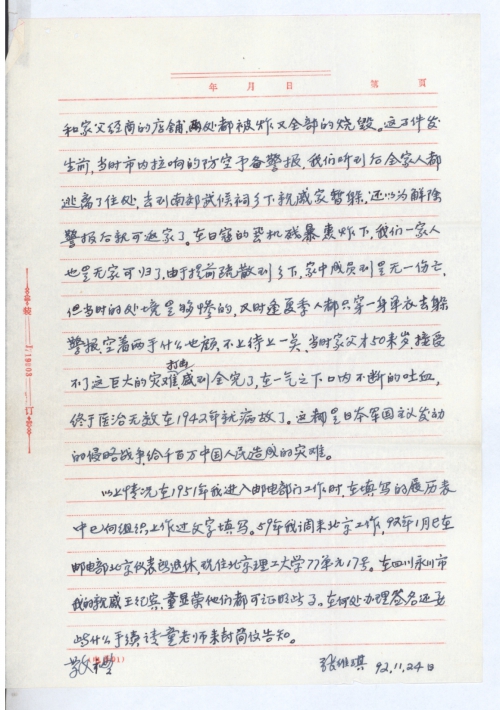 年 月 日 第 页
和家父经商的店铺,两处都被炸又全部的烧毁。这不件发
生前,当时市内拉响的防空予备警报,我们听到后全家人都
逃离了住处,去到南郊武候祠乡下亲戚家暂躲,还以为解除
警报后就可返家了。在日寇的飞机残暴轰炸下,我们一家人
也是无家可归了,由于提前疏散到乡下,家中成员到是无一伤亡,
但当时的处境是够惨的,又时逢夏季人都只穿一身单衣去躲
警报,空着两手什么也顾不上待上一点,当时家父才50来岁,接受
不了这巨大的灾难打击,感到全完了,在一气之下口内不断的吐血,
终于医治无效在1942年就病故了。这都是日本军国主义发动
的侵略战争给千百万中国人民造成的灾难。
以上情况在1951年我进入邮电部门工作时,在填写的履历表
中已向组织上作过文字填写。59年我调来北京工作,92年1月已在
邮电部北京仪表 退休,现住北京理工大学77单元17号。在四川永川市
我的亲戚王纪宾,童 荣他们都可证明此事。在何处办理签名还要
些什么手续请童老师来封简仪告知。
敬礼
张维琪 92.11.24日
装 订